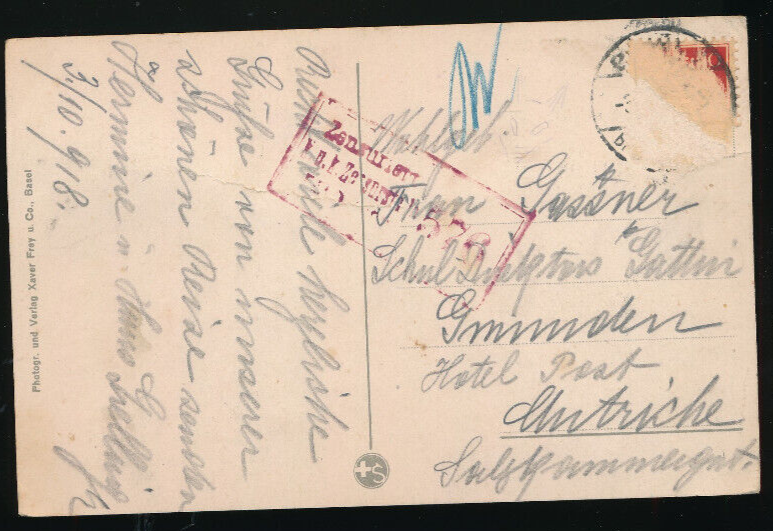 Recht viele herzliche
Grüße von unserer
schönen Reise senden
Hermine u. Hans
3/10. 918.
Photogr. und Verlag Xaver Frey u. Co., Basel
W
Zensuriert
K.u.k. Zensurstelle
576
Wohlgeb.
Frau Gassner
Schul Direktors Gattin
Gmunden
Hotel Post
Autriche
Salzkammergut.
S